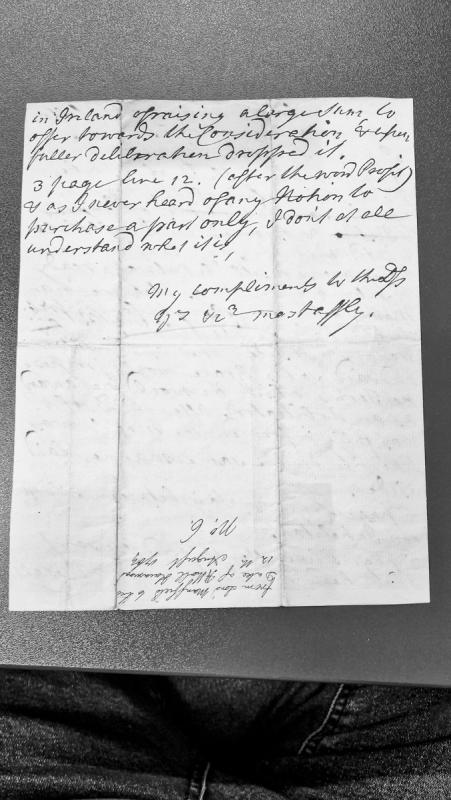 in Ireland of raising a large sum to
offer towards the Consideration, & upon
fuller deliberation dropped it.
3 page line 12. (after the word Project)
& as I never heard of any Notion to
purchase a part only, I don't at all
understand what it is,
My compliments to the Dss
Yrs &ca most affly.
No. 6.
from Lord Mansfield to the
Duke of Atholl
12th August 1764